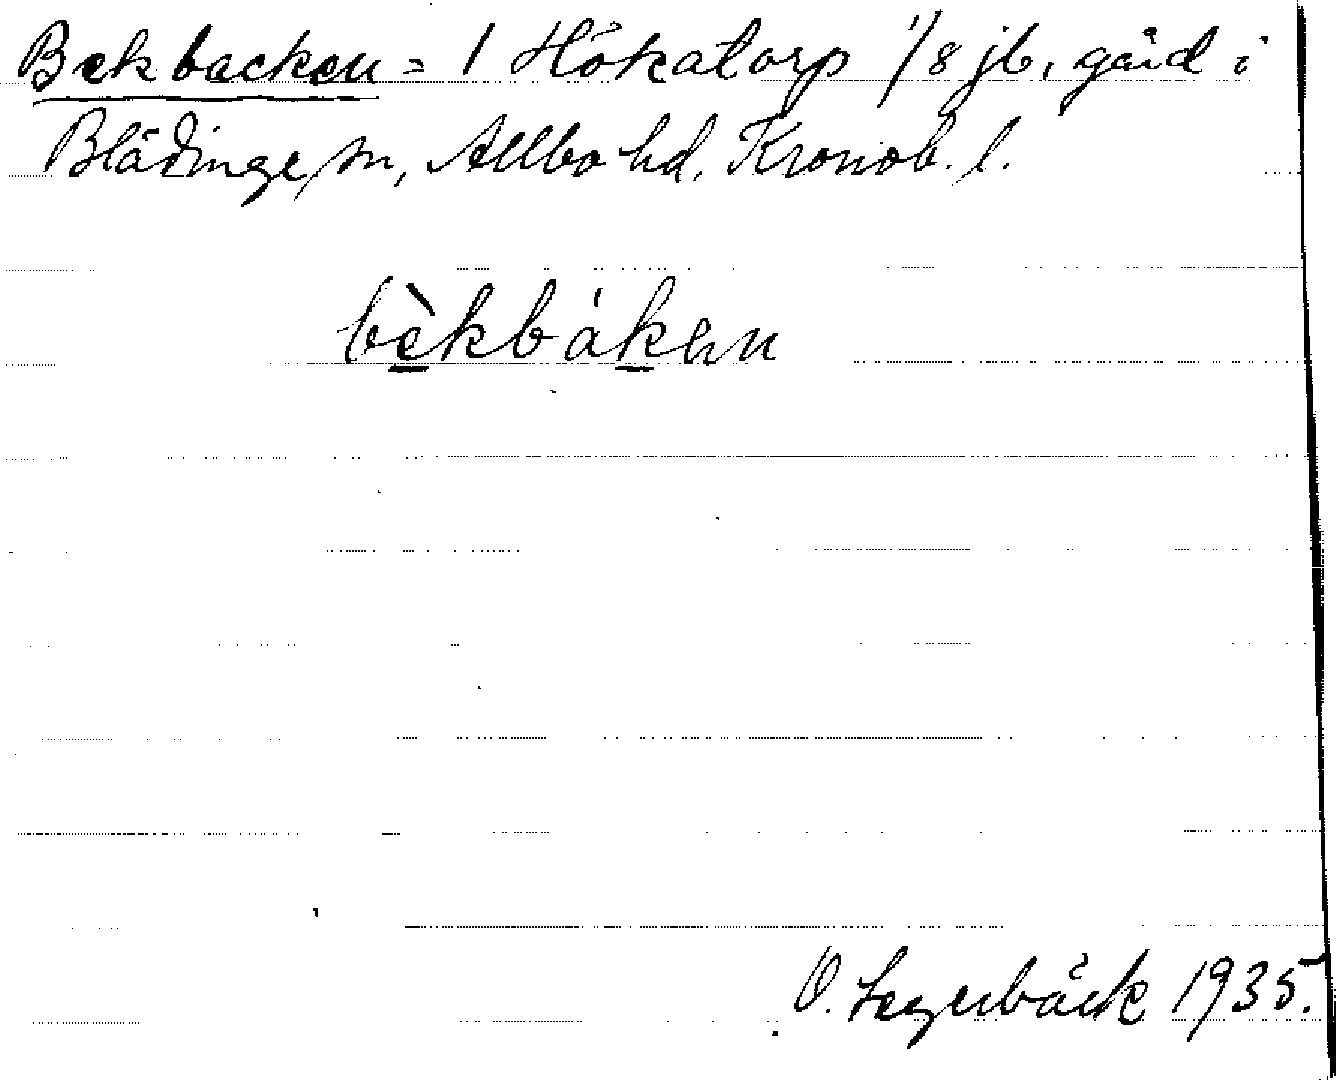 Bekbacken = 1 Hökatorp 1/8 jb. gård i
Blädinge sn, Allbo hd. Kronob. l.
bèkbáken
O. Lagerbäck 1935.